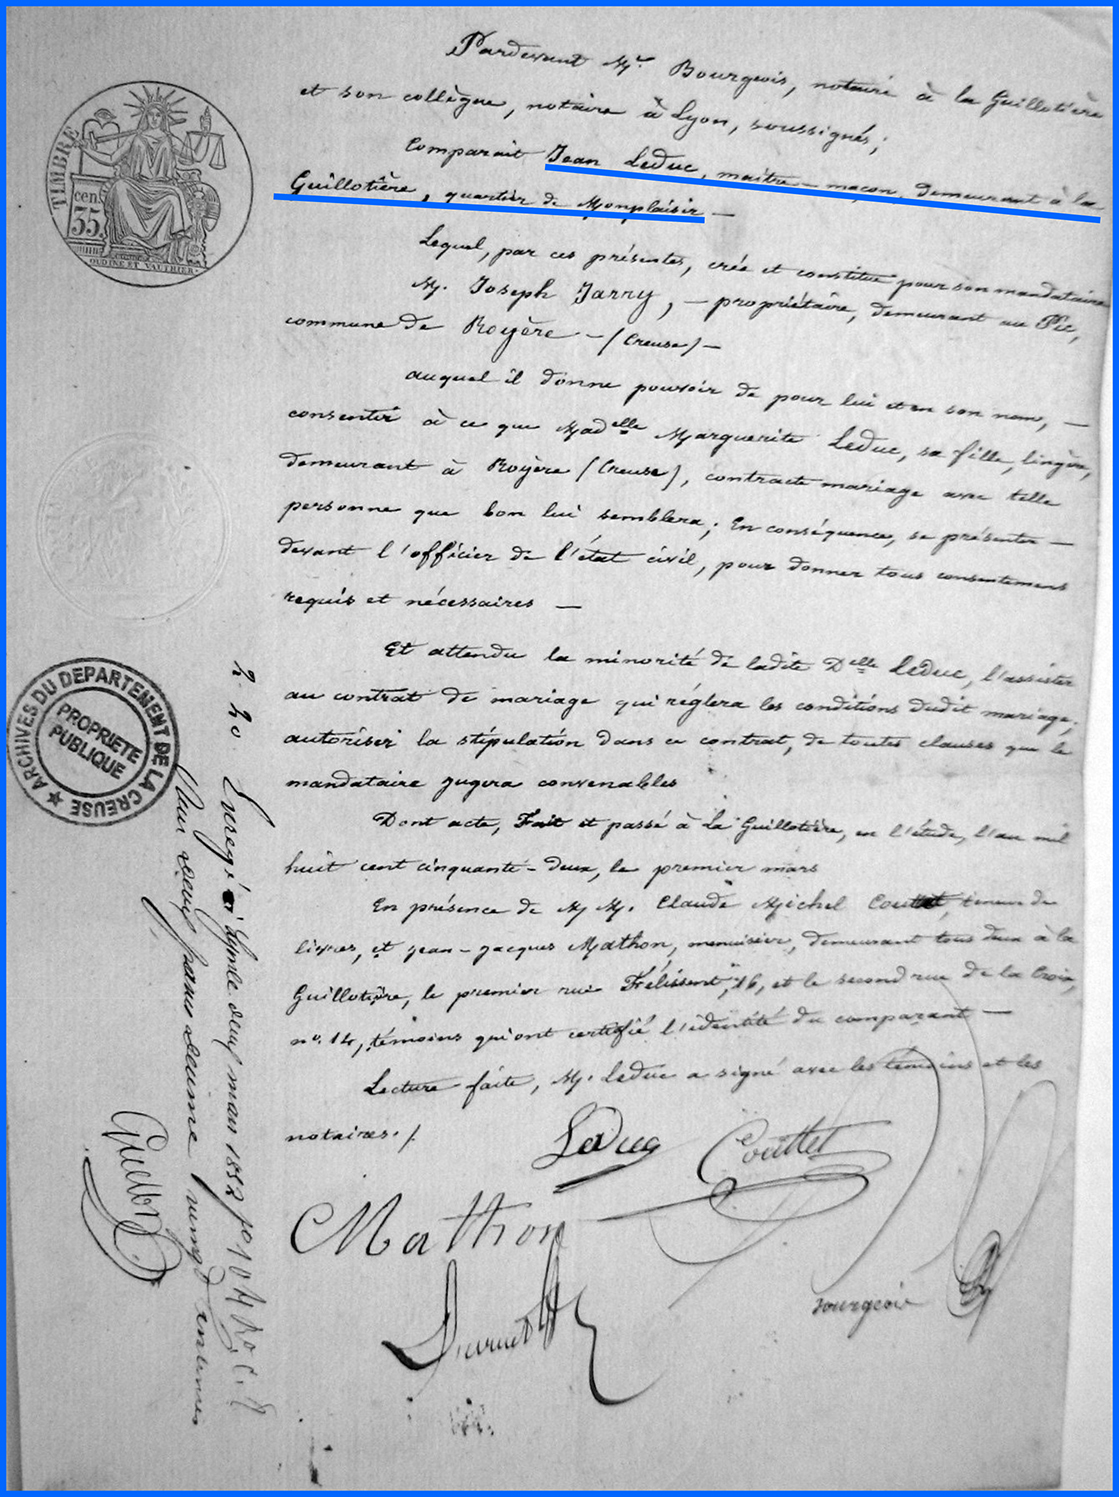 Pardevant Me. Bourgeois, notaire à la Guillotière
et son collègue, notaire à Lyon, soussignés;
Comparait Jean Leduc, maître-maçon, demeurant à la
Guillotière, quartier de Monplaisir —
Lequel, par ces présentes, crée et constitue pour son mandataire
M. Joseph Jarry, — propriétaire, demeurant au Pic,
commune de Royère — (Creuse) —
auquel il donne pouvoir de pour lui et en son nom, —
consentir à ce que Madelle Marguerite Leduc, sa fille, lingère,
demeurant à Royère (Creuse), contracte mariage avec telle
personne que bon lui semblera; En conséquence, se présenter —
devant l'officier de l'état civil, pour donner tous consentements
requis et nécessaires —
Et attendu la minorité de ladite Delle Leduc, l'assister
au contrat de mariage qui réglera les conditions dudit mariage;
autoriser la stipulation dans ce contrat, de toutes clauses que le
mandataire jugera convenables
Dont acte, Fait et passé à La Guillotière, en l'étude, l'an mil
huit cent cinquante-deux, le premier mars
En présence de MM. Claude Michel Couttet, teneur de
livres, et Jean-Jacques Mathon, menuisier, demeurant tous deux à la
Guillotière, le premier rue Félissent, 16, et le second rue de la Croix,
no. 14, témoins qui ont certifié l'identité du comparant —
Lecture faite, M. Leduc a signé avec les témoins et les
notaires./.
Leduc
Couttet
Mathon
Bourgeois
TIMBRE
35 cen.
OUDINÉ ET VAUTHIER.
ARCHIVES DU DEPARTEMENT DE LA CREUSE
PROPRIETE
PUBLIQUE
2. 20.
Enregé à Lyon le deux mars 1852
deux francs décime vingt centimes